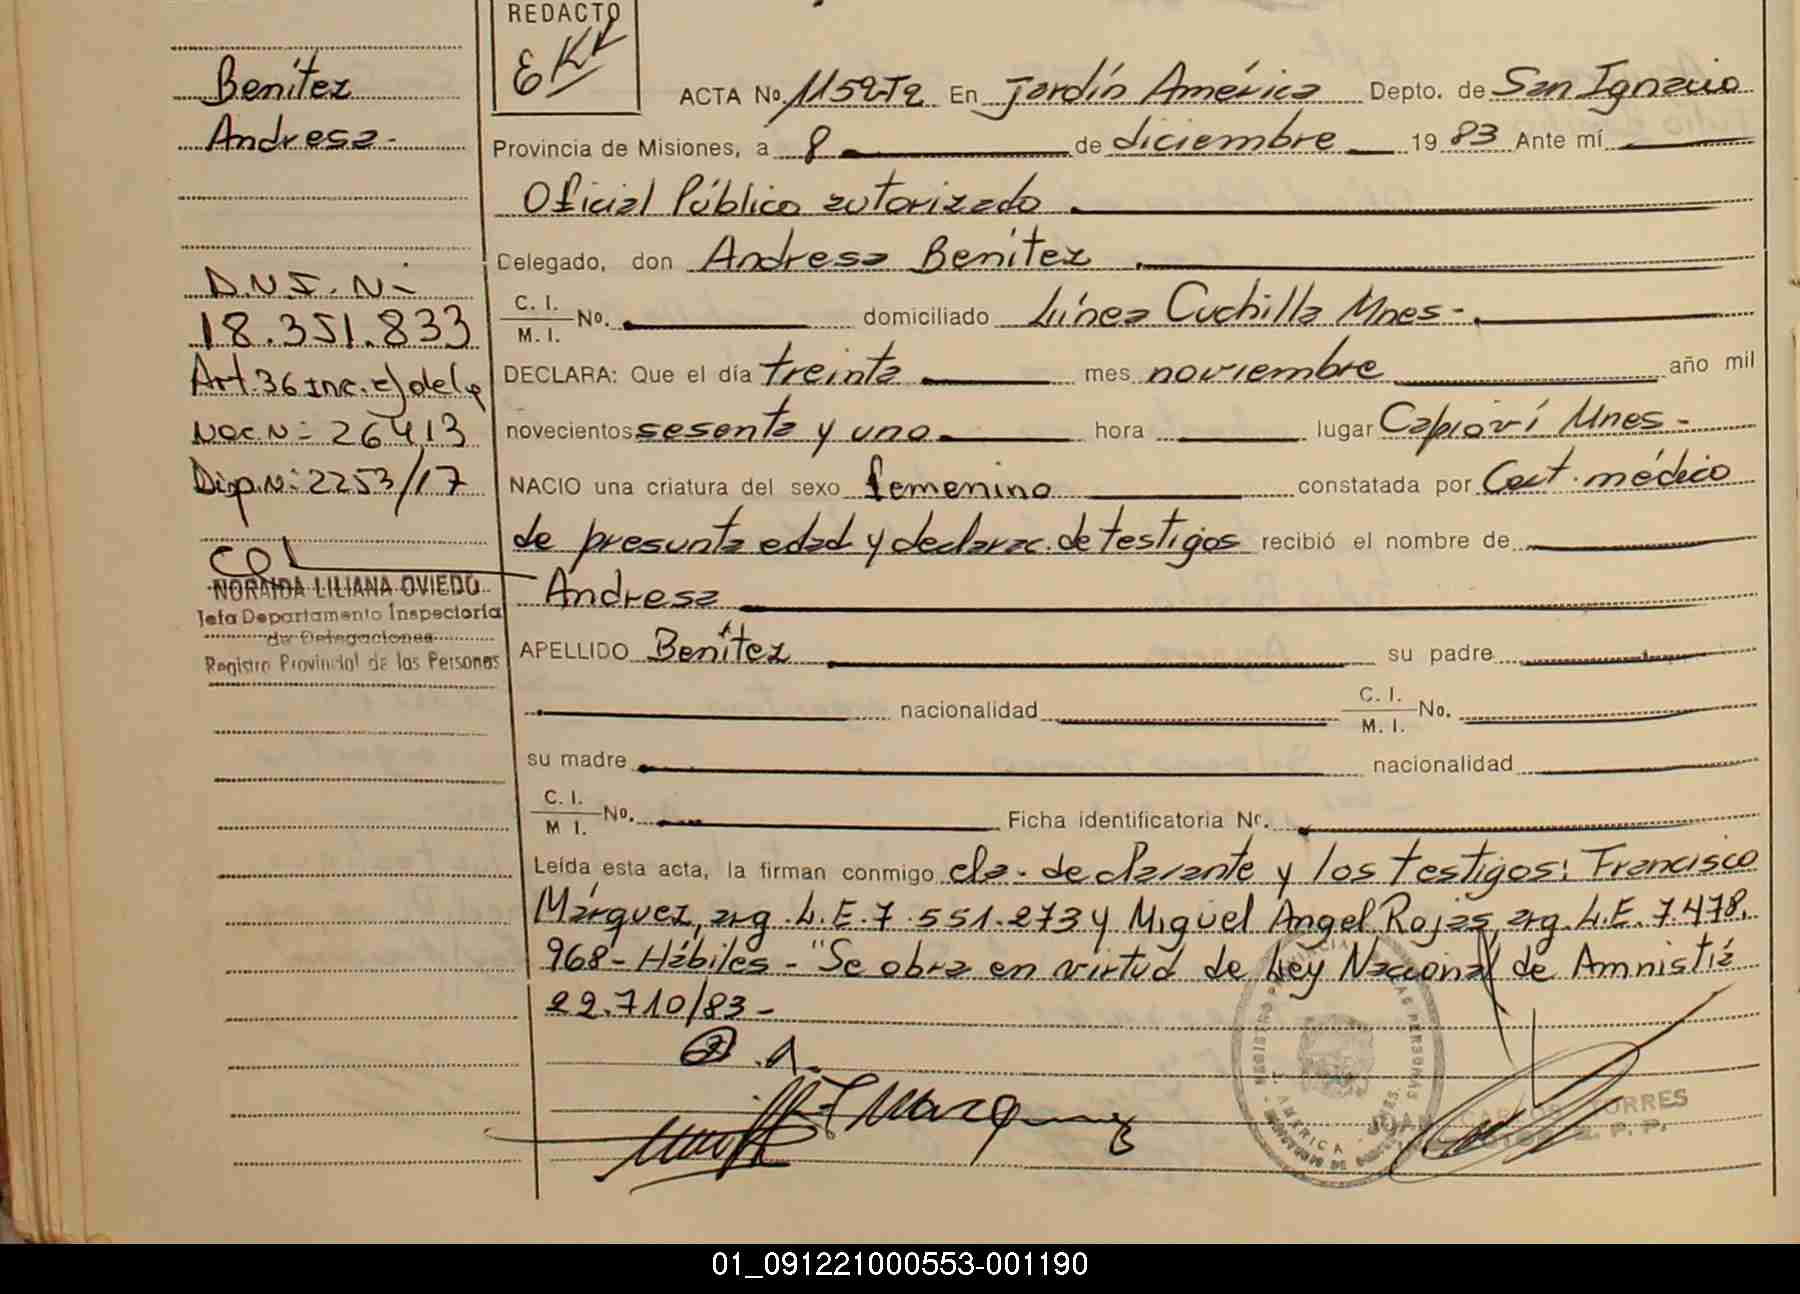 REDACTO
Benítez
Andresa.-
D.N.I. Nº
18.351.833
Art. 36 inc. e) de la
Disp. Nº 2253/17
NORAIDA LILIANA OVIEDO
Jefa Departamento Inspectoria
de Delegaciones
Registro Provincial de las Personas
ACTA No. 1159-T2 En Jardín América Depto. de San Ignacio
Provincia de Misiones, a 8 de diciembre 1983 Ante mí
Oficial Público autorizado
Delegado, don Andresa Benítez
C. I.
M. I. No. domiciliado Línea Cuchilla Mnes-
DECLARA: Que el día treinta mes noviembre año mil
novecientos sesenta y uno hora lugar Capioví Mnes-
NACIO una criatura del sexo femenino constatada por Cert. médico
de presunta edad y declarac. de testigos recibió el nombre de
Andresa
APELLIDO Benítez su padre
nacionalidad C. I.
M. I. No.
su madre nacionalidad
C. I.
M I. No. Ficha identificatoria Nr.
Leída esta acta, la firman conmigo la declarante y los testigos: Francisco
Márquez, arg. L.E. 7.551.273 y Miguel Angel Rojas, arg. L.E. 7.478.
968- Hábiles - "Se obra en virtud de Ley Nacional de Amnistía
22.710/83-
JUAN CARLOS TORRES
01_091221000553-001190